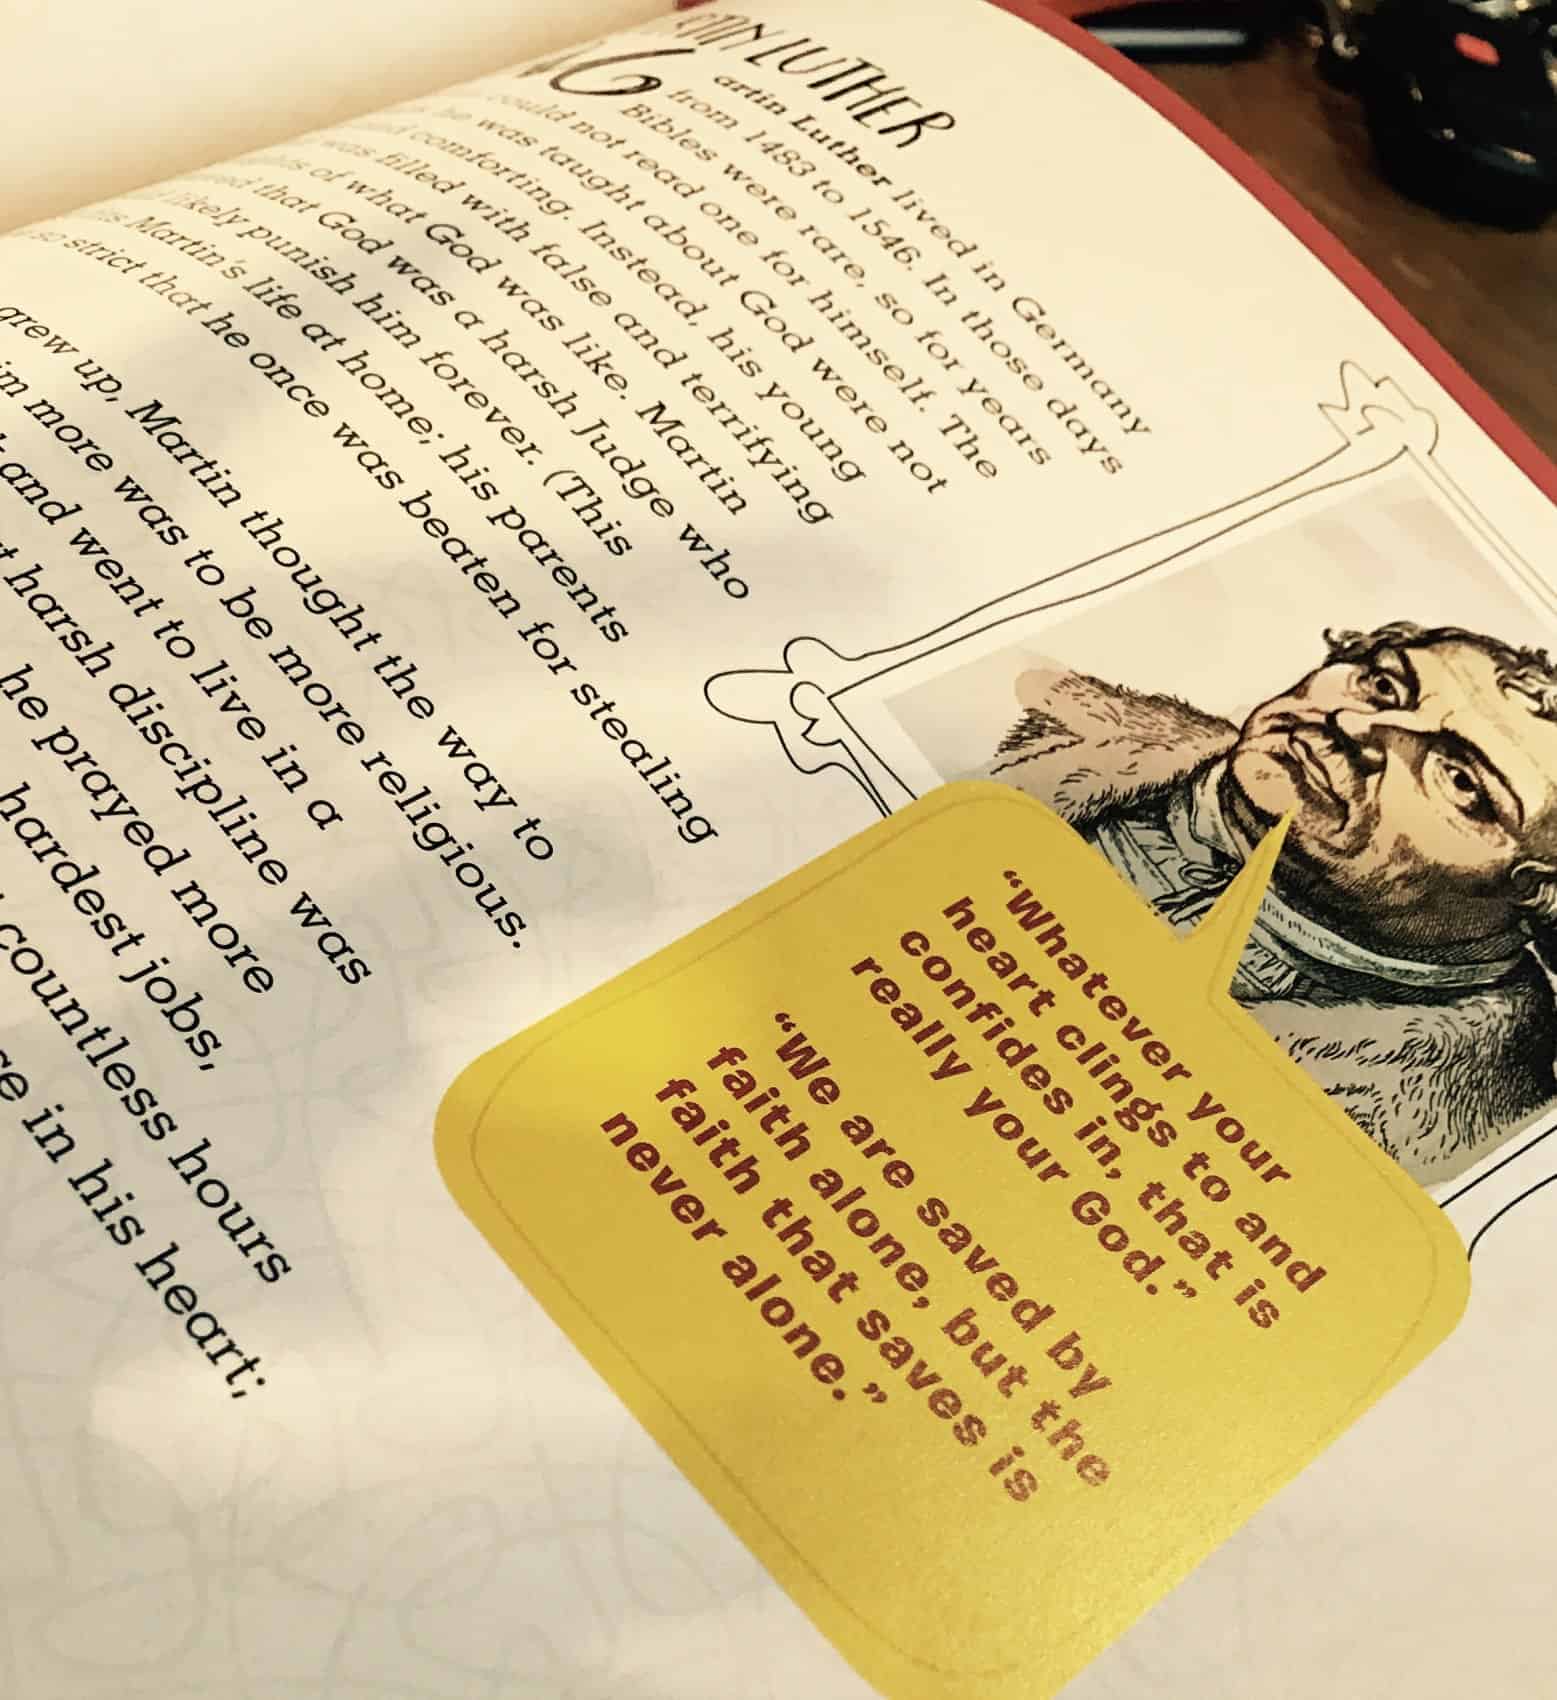 LUTHER
artin Luther lived in Germany
from 1483 to 1546. In those days
Bibles were rare, so for years
could not read one for himself. The
he was taught about God were not
and comforting. Instead, his young
was filled with false and terrifying
of what God was like. Martin
that God was a harsh Judge who
likely punish him forever. (This
Martin's life at home; his parents
so strict that he once was beaten for stealing
grew up, Martin thought the way to
more was to be more religious.
and went to live in a
harsh discipline was
he prayed more
hardest jobs,
countless hours
in his heart;
“Whatever your
heart clings to and
confides in, that is
really your God.”
“We are saved by
faith alone, but the
faith that saves is
never alone.”